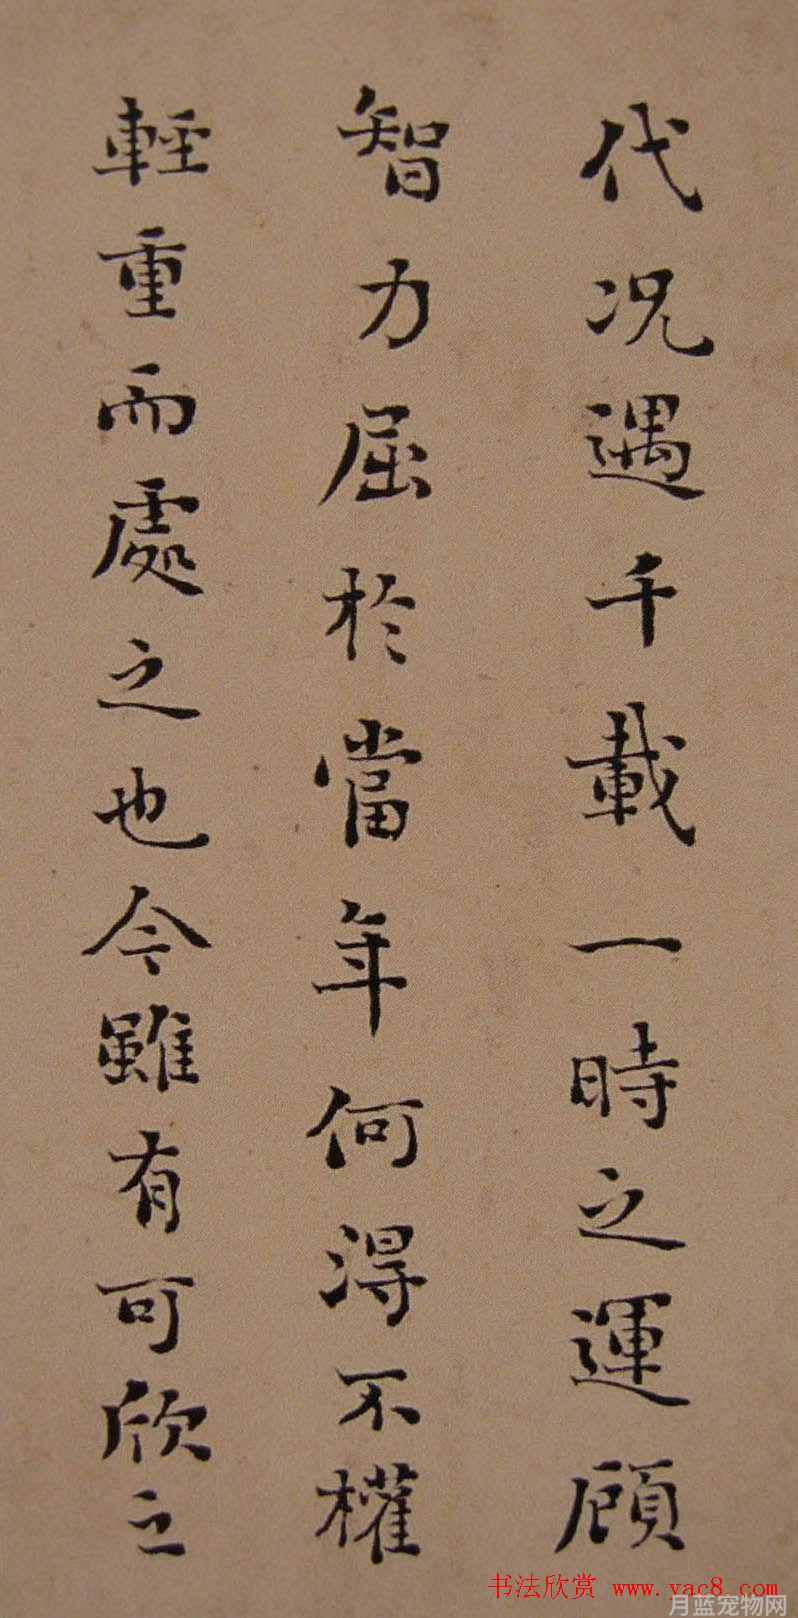 代况遇千載一時之運顧
智力屈於當年何得不權
輕重而處之也今雖有可欣之
书法欣赏 www.yac8.com
月蓝宠物网